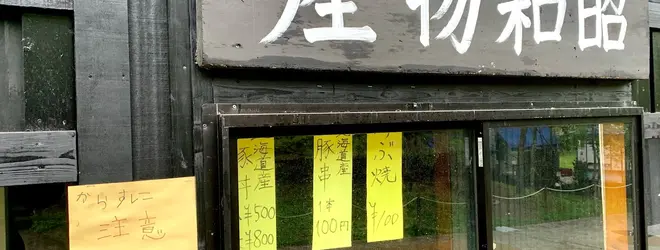 産物和昭
海道産
豚丼
¥500
¥800
海道産
豚串
1本
100円
ぶ焼
¥100
がらすに
注意